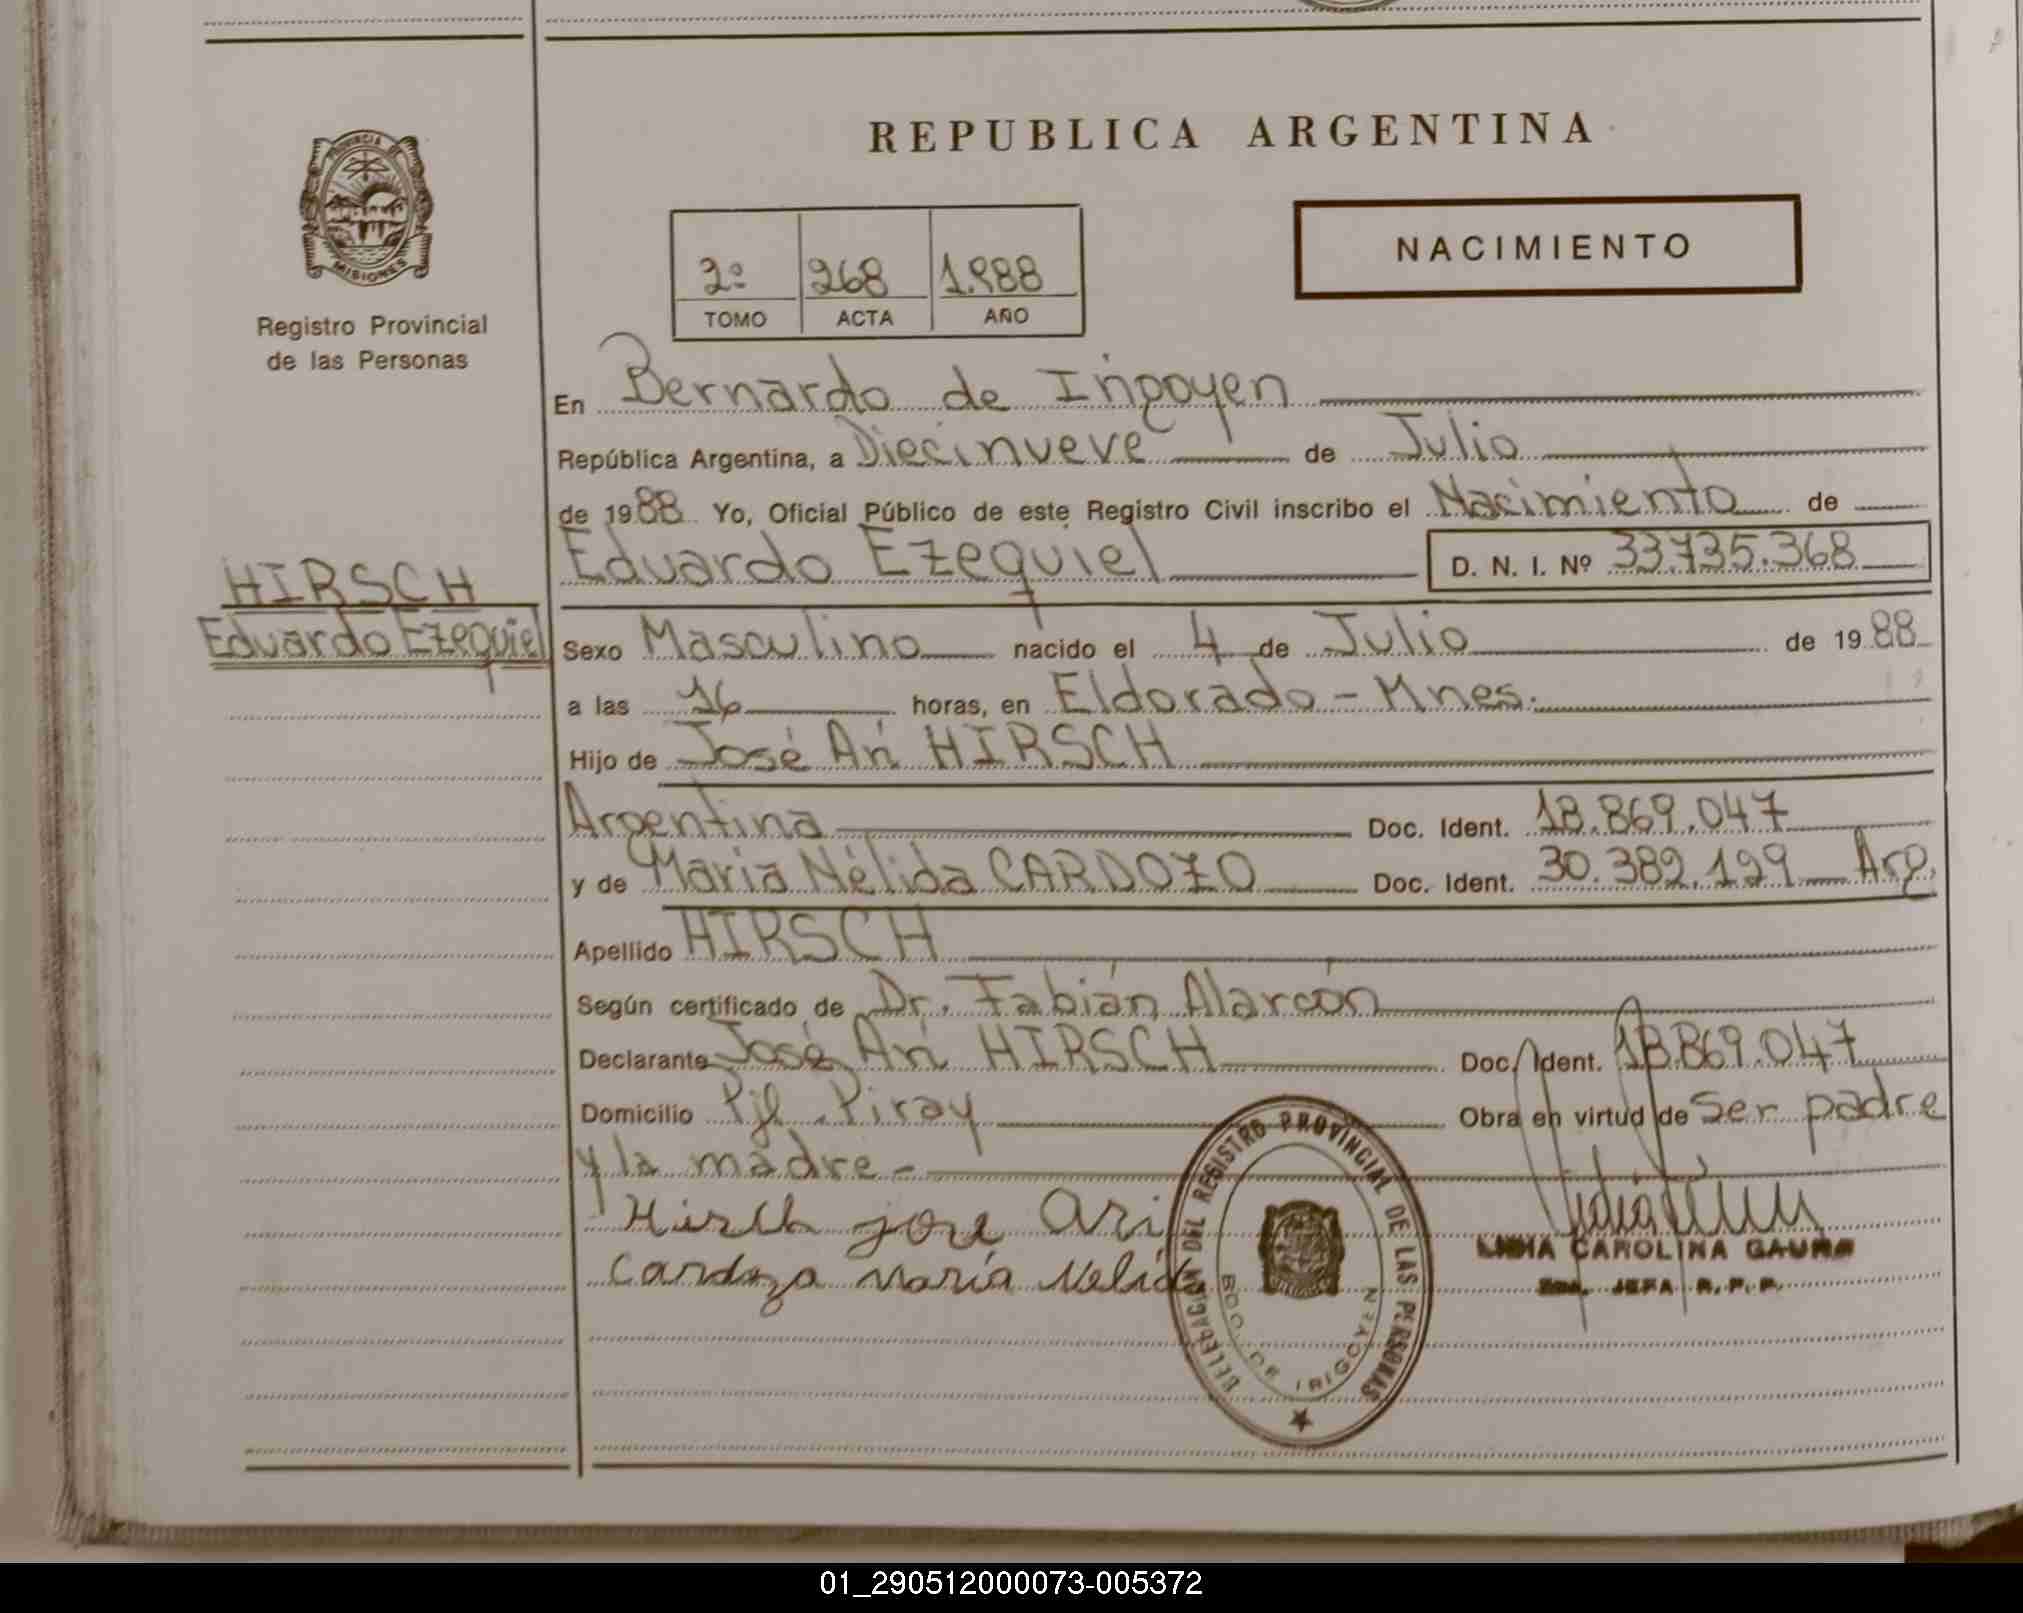 REPUBLICA ARGENTINA
PROVINCIA DE
MISIONES
Registro Provincial
de las Personas
2º 268 1.988
TOMO ACTA AÑO
NACIMIENTO
En Bernardo de Irigoyen
República Argentina, a Diecinueve de Julio
de 1988 Yo, Oficial Público de este Registro Civil inscribo el Nacimiento de
Eduardo Ezequiel D. N. I. Nº 33.735.368
HIRSCH
Eduardo Ezequiel
Sexo Masculino nacido el 4 de Julio de 1988
a las 16 horas, en Eldorado - Mnes.
Hijo de José Ari HIRSCH
Argentina Doc. Ident. 18.869.047
y de Maria Nélida CARDOZO Doc. Ident. 30.382.129 Arg.
Apellido HIRSCH
Según certificado de Dr. Fabián Alarcón
Declarante José Ari HIRSCH Doc. Ident. 18.869.047
Domicilio Pje. Piray Obra en virtud de Ser padre
y la madre -
Hirsch jose Ari
Cardozo María Nelida
DELEGACION DEL REGISTRO PROVINCIAL DE LAS PERSONAS
BDO. DE IRIGOYEN
LIDIA CAROLINA
JEFA R. P. P.
01_290512000073-005372